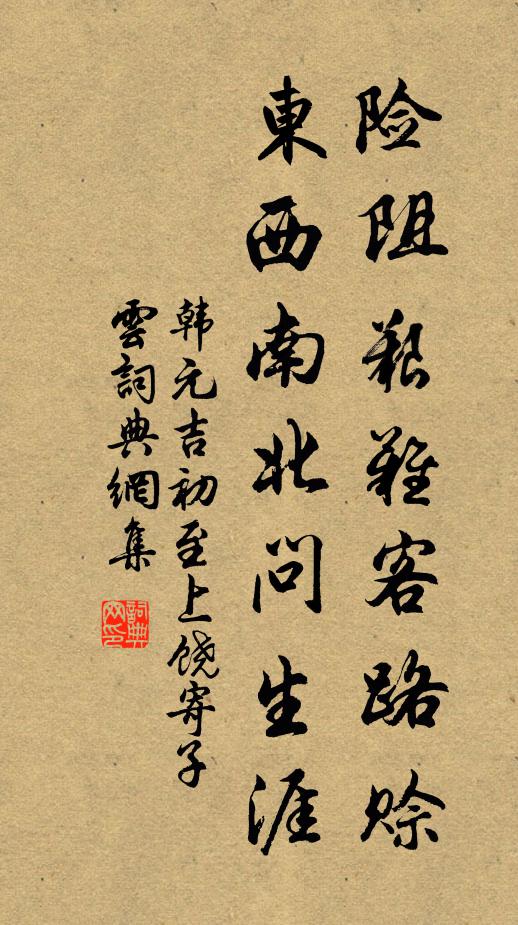 险阻艰难客路赊
東西南北問生涯
韩元吉初至上饶寄子
雲詞典網集
詞典网印